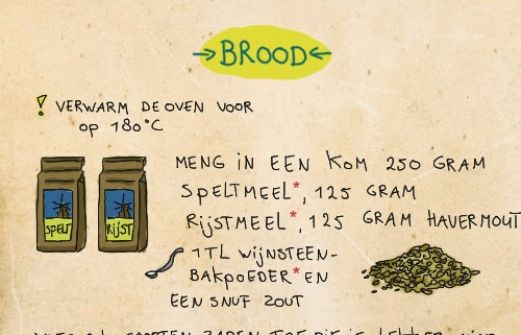 →BROOD←
! VERWARM DE OVEN VOOR
OP 180°C
MENG IN EEN KOM 250 GRAM
SPELTMEEL*, 125 GRAM
RIJSTMEEL*, 125 GRAM HAVERMOUT
SPELT RIJST
1 TL WIJNSTEEN-
BAKPOEDER* EN
EEN SNUF ZOUT